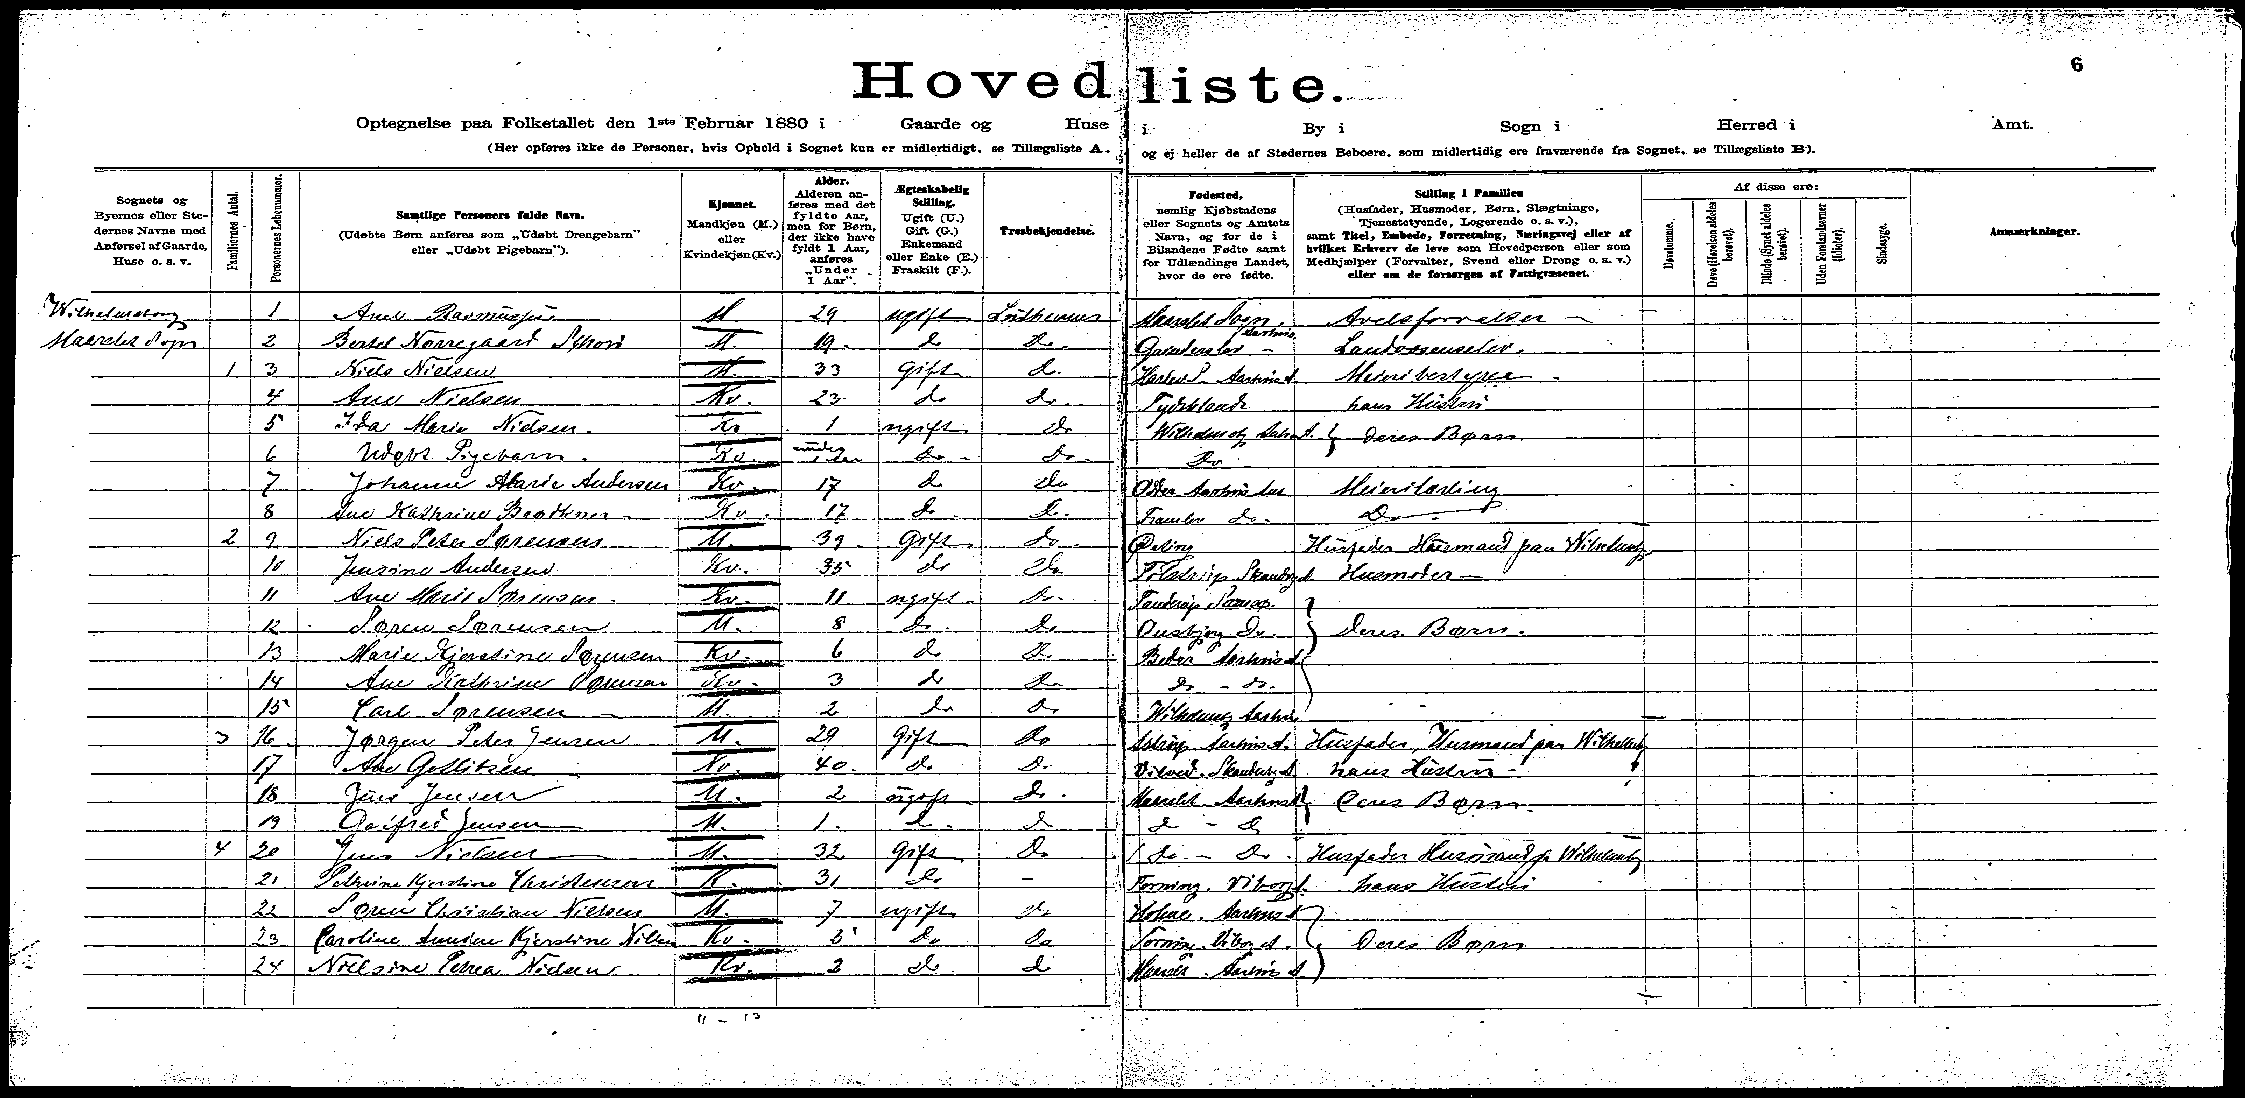 6
Hovedliste.
Optegnelse paa Folketallet den 1ste Februar 1880 i Gaarde og Huse i By i Sogn i Herred i Amt.
(Her opføres ikke de Personer, hvis Ophold i Sognet kun er midlertidigt, se Tillægsliste A. og ej heller de af Stedernes Beboere, som midlertidig ere fraværende fra Sognet, se Tillægsliste B).
Sognets og Byernes eller Stedernes Navne med Anførsel af Gaarde, Huse o. s. v.
Familiernes Antal.
Personernes Løbenummer.
Samtlige Personers fulde Navn.
(Udøbte Børn anføres som „Udøbt Drengebarn” eller „Udøbt Pigebarn”).
Kjønnet.
Mandkjøn (M.) eller Kvindekjøn (Kv.)
Alder.
Alderen anføres med det fyldte Aar, men for Børn, der ikke have fyldt 1 Aar, anføres „Under 1 Aar”.
Ægteskabelig Stilling.
Ugift (U.) Gift (G.) Enkemand eller Enke (E.) Fraskilt (F.).
Trosbekjendelse.
Fødested,
nemlig Kjøbstadens eller Sognets og Amtets Navn, og for de i Bilandene Fødte samt for Udlændinge Landet, hvor de ere fødte.
Stilling i Familien
(Husfader, Husmoder, Børn, Slægtninge, Tjenestetyende, Logerende o. s. v.), samt Titel, Embede, Forretning, Næringsvej eller af hvilket Erhverv de leve som Hovedperson eller som Medhjælper (Forvalter, Svend eller Dreng o. s. v.) eller om de forsørges af Fattigvæsenet.
Af disse ere:
Døvstumme.
Døve (Hørelsen aldeles berøvet).
Blinde (Synet aldeles berøvet).
Uden Forstandsevner (Idioter).
Sindssyge.
Anmærkninger.
Wilhelmsborg 1 Rasmussen M 29 ugift Lutheraner Sogn Avelsforvalter
Maarslet Sogn 2 Nørregaard M. 19 do do. Aarhus
1 3 Niels Nielsen M. 33 Gift do. Aarhus A. Meieribestyrer
4 Ane Nielsen Kv. 23 do do. Tydskland hans Hustru
5 Ida Marie Nielsen. Kv 1 ugift do } deres Børn
6 Udøbt Pigebarn. Kv. under 1 Aar do do do
7 Johanne Marie Andersen Kv. 17 do do Odder Meierilærling
8 Ane Kathrine Kv. 17 do do. Framlev do. Do
2 9 Niels Peter Sørensen M. 39 Gift do. Husfader Husmand paa
10 Jensine Andersen Kv. 35 do do Husmoder
11 Ane Marie Sørensen Kv. 11 ugift do. Samsø.
12 Søren Sørensen M. 8 do. do Onsbjerg do } deres Børn.
13 Marie Kjerstine Sørensen Kv. 6 do do Beder Aarhus A
14 Ane Kathrine Sørensen Kv. 3 do do do – do.
15 Carl Sørensen M. 2 do do
3 16 Jørgen Peter Jensen M. 29 Gift do Aarhus A. Husfader, Husmand paa
17 Ane Kv. 40. do. do. Skanderbg A hans Hustru
18 Jens Jensen M. 2 ugift do. Maarslet Aarhus A } deres Børn
19 Jensen M. 1. do do do – do
4 20 Jens Nielsen M. 32 Gift do do – do. Husfader Husmand
21 Petrine Kjerstine Christensen K. 31 do – Viborg A. hans Hustru
22 Søren Christian Nielsen M. 7 ugift do Aarhus A
23 Caroline Kjerstine Kv. 5 do do Viborg A. } deres Børn
24 Nielsine Petrea Nielsen Kv. 2 do do Aarhus A
11 – 13